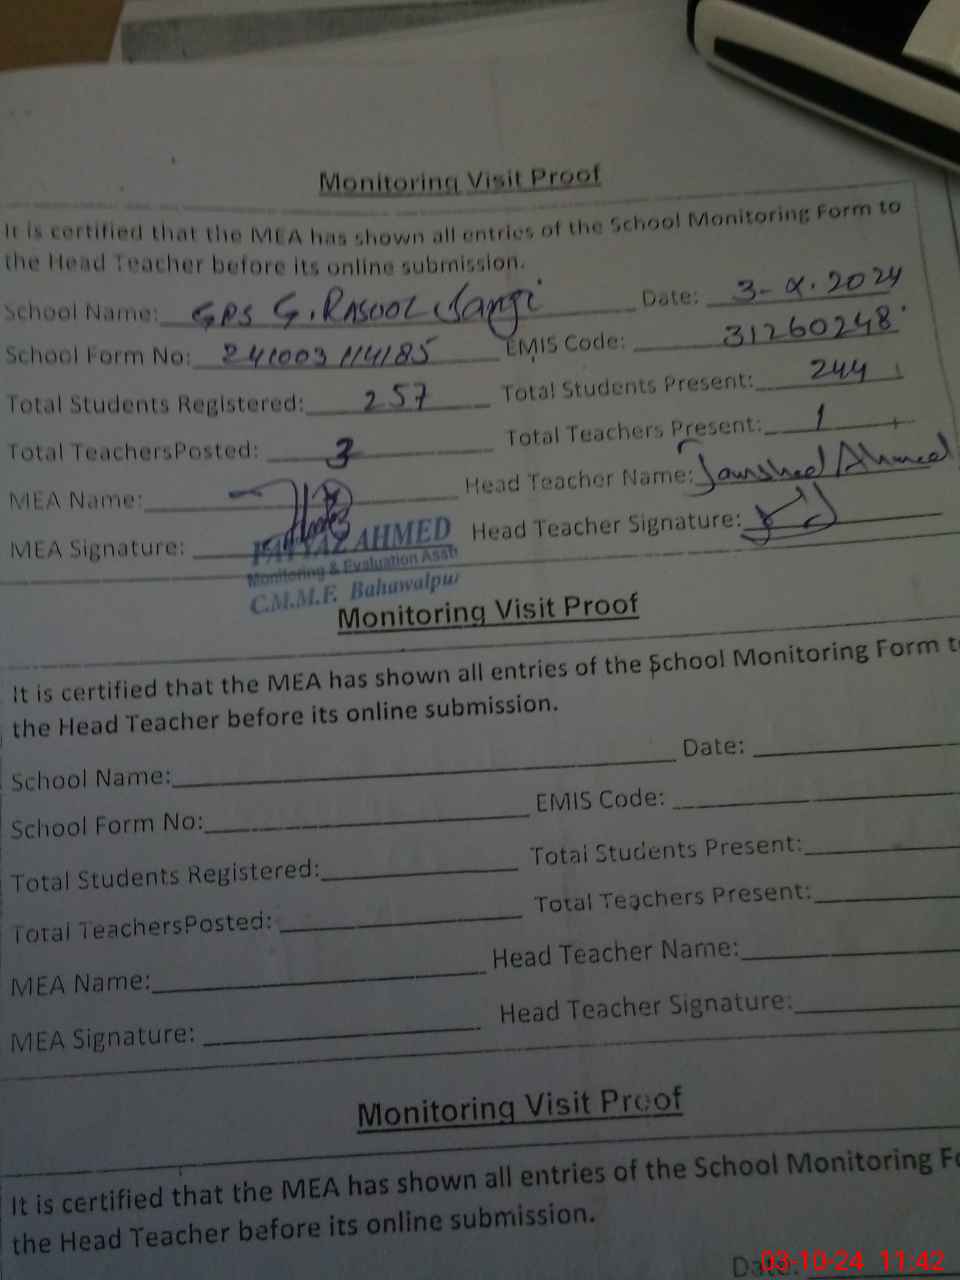 Monitoring Visit Proof
It is certified that the MEA has shown all entries of the School Monitoring Form to
the Head Teacher before its online submission.
School Name: GPS G. RASOOL Jangi Date: 3- 2024
School Form No: 241003114185 EMIS Code: 31260248
Total Students Registered: 257 Total Students Present: 244
Total TeachersPosted: 3 Total Teachers Present: 1
MEA Name: Head Teacher Name: Jamsheed Ahmed
MEA Signature: Head Teacher Signature:
FAYYAZ AHMED
Monitoring & Evaluation Asstt
C.M.M.F. Bahawalpur
Monitoring Visit Proof
It is certified that the MEA has shown all entries of the School Monitoring Form to
the Head Teacher before its online submission.
School Name: Date:
School Form No: EMIS Code:
Total Students Registered: Total Students Present:
Total TeachersPosted: Total Teachers Present:
MEA Name: Head Teacher Name:
MEA Signature: Head Teacher Signature:
Monitoring Visit Proof
It is certified that the MEA has shown all entries of the School Monitoring Fo
the Head Teacher before its online submission.
Date:
03-10-24 11:42